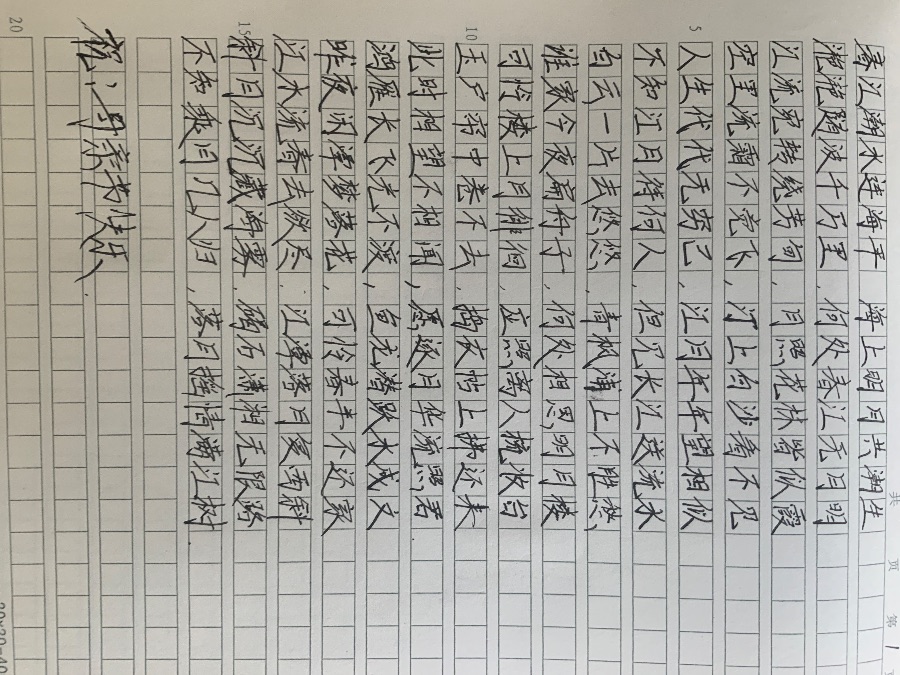 共 页 第 1
春江潮水连海平 海上明月共潮生
滟滟随波千万里 何处春江无月明
江流宛转绕芳甸、月照花林皆似霞
空里流霜不觉飞、汀上白沙看不见
5
人生代代无穷已、江月年年望相似
不知江月待何人、但见长江送流水
白云一片去悠悠、青枫浦上不胜愁
谁家今夜扁舟子、何处相思明月楼
可怜楼上月徘徊、应照离人梳妆台
10
玉户帘中卷不去、捣衣砧上拂还来
此时相望不相闻,愿逐月华流照君
鸿雁长飞光不度,鱼龙潜跃水成文
昨夜闲潭梦落花、可怜春半不还家
江水流春去欲尽、江潭落月复西斜
15
斜月沉沉藏海雾、碣石潇湘无限路
不知乘月几人归、落月摇情满江树.
20